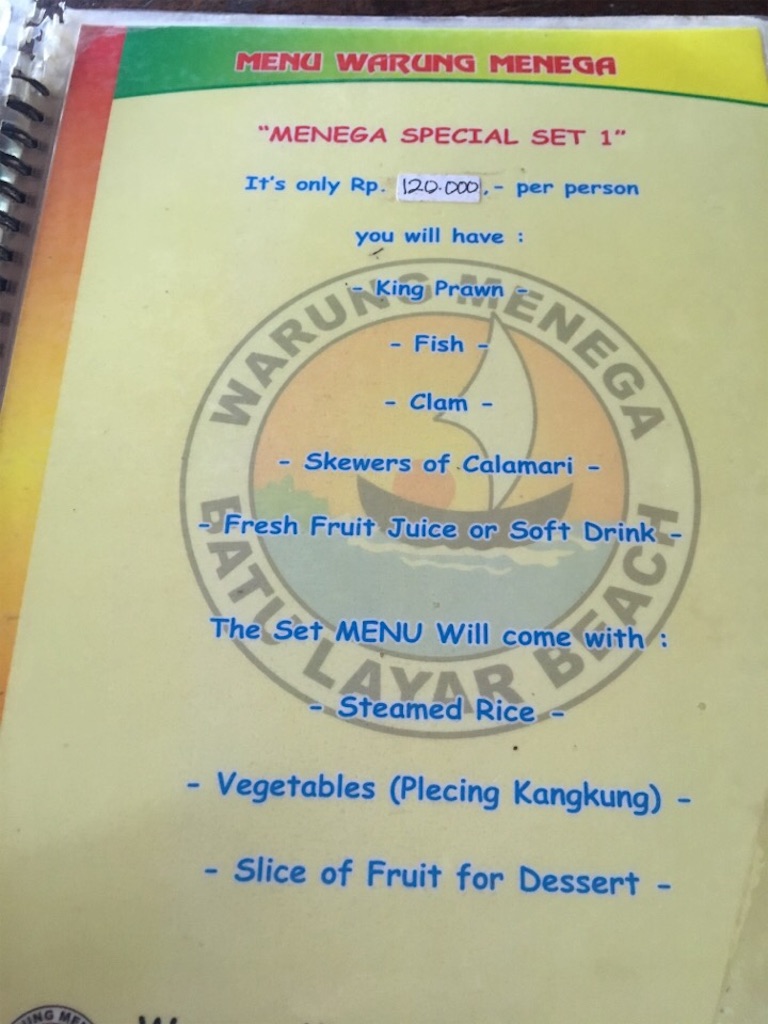 MENU WARUNG MENEGA
"MENEGA SPECIAL SET 1"
It's only Rp. 120.000,- per person
you will have :
- King Prawn -
- Fish -
- Clam -
- Skewers of Calamari -
- Fresh Fruit Juice or Soft Drink -
The Set MENU Will come with :
- Steamed Rice -
- Vegetables (Plecing Kangkung) -
- Slice of Fruit for Dessert -
WARUNG MENEGA
BATU LAYAR BEACH